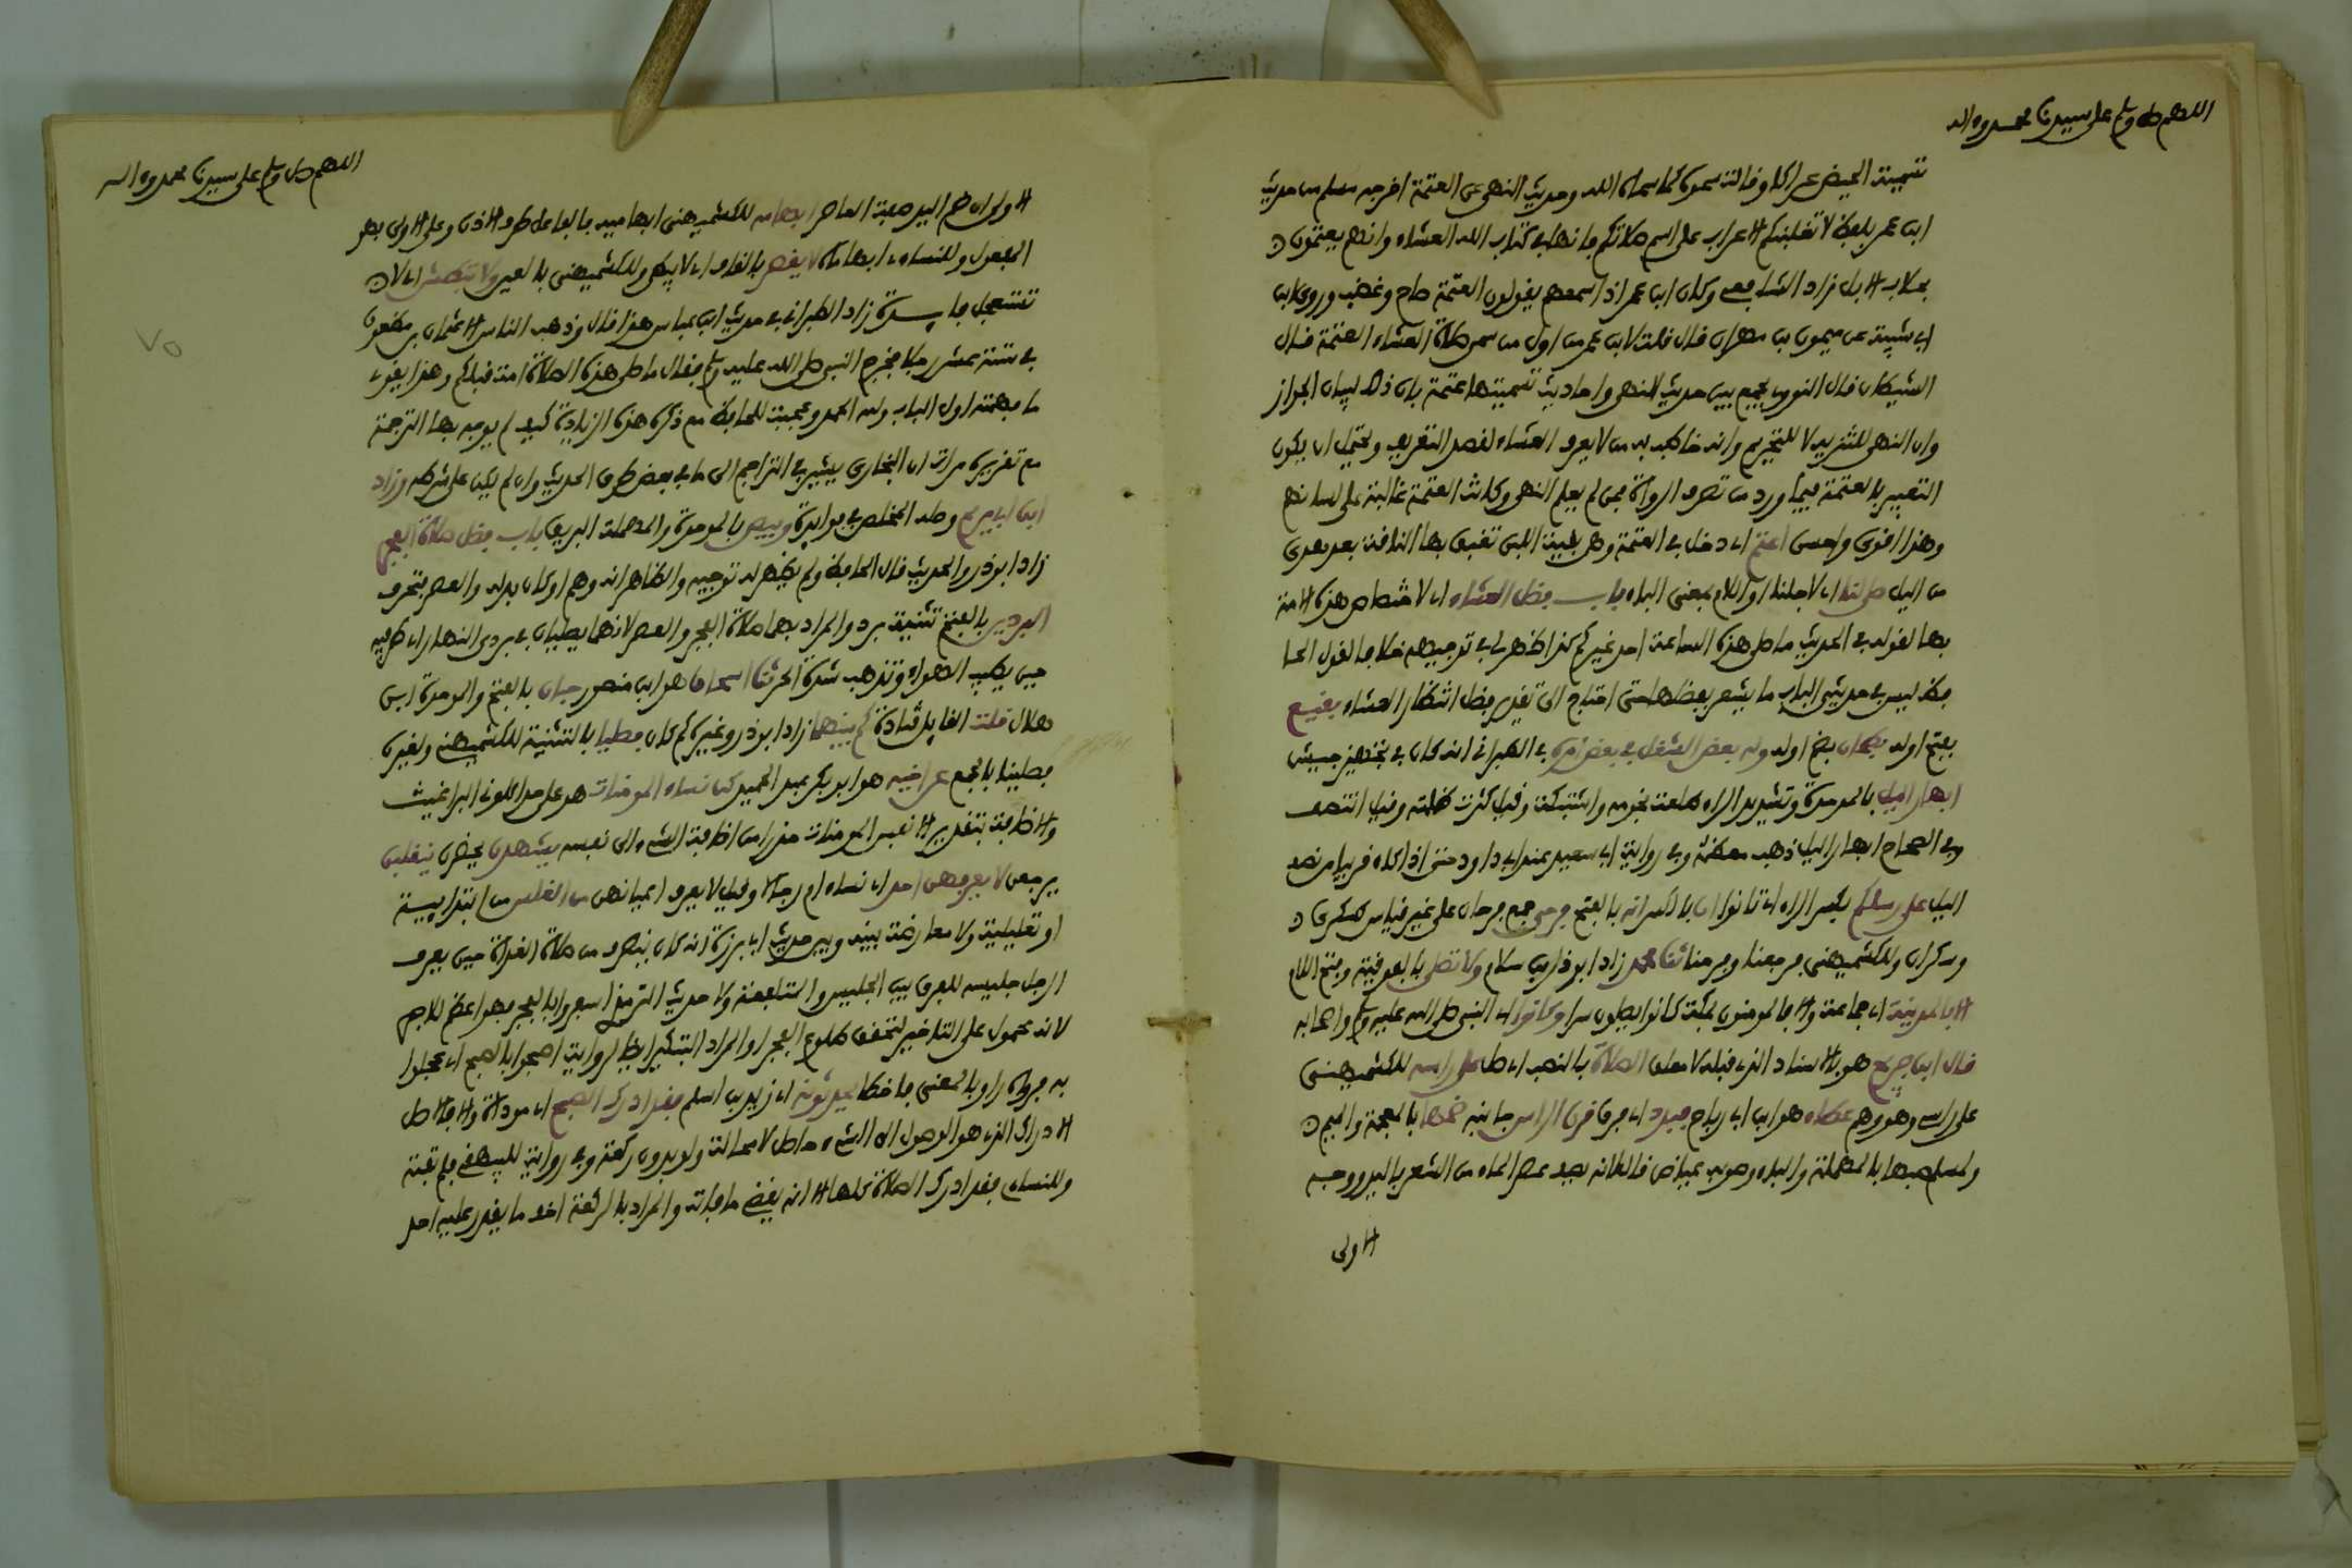 اللهم صل وسلم على سيدنا محمد وءاله
تسمية الحيض عركا وقالت سموه كما سماه الله وحديث النهي عن العتمة اخرجه مسلم من حديث
ابن عمر بلفظ لا تغلبنكم الاعراب على اسم صلاتكم فإنها في كتاب الله العشاء وانهم يعتمون
بحلاب الابل زاد الشافعي وكان ابن عمر اذا سمعهم يقولون العتمة صاح وغضب وروى ابن
ابي شيبة عن ميمون بن مهران قال قلت لابن عمر من اول من سمى صلاة العشاء العتمة قال
الشيطان قال النووي يجمع بين حديث النهي واحاديث تسميتها عتمة بان ذلك لبيان الجواز
وان النهي للتنزيه لا للتحريم وانه خاطب به من لا يعرف العشاء لقصد التعريف ويحتمل ان يكون
التعبير بالعتمة فيما ورد من تصرف الرواة ممن لم يعلم النهي وكانت العتمة غالبة على لسانهم
وهذا اقوى واحسن اعتم اي دخل في العتمة وهي بقية اللبن تغبق بها الناقة بعد هوي
من الليل صلى لنا اي لاجلنا او اللام بمعنى الباء باب فضل العشاء اي لاختصاص هذه الامة
بها لقوله في الحديث ما صلى هذه الساعة احد غيركم كذا ظهر لي في توجيهه خلافا لقول الحا
فظ ليس في حديثي الباب ما يشعر بفضلها حتى احتاج الى تقدير فضل انتظار العشاء بقيع
بفتح اوله بطحان بضم اوله وله بعض الشغل في بعض امره في الطبراني انه كان في تجهيز جيش
ابهار الليل بالموحدة وتشديد الراء طلعت نجومه واشتبكت وقيل كثرت ظلمته وقيل انتصف
وفي الصحاح ابهار الليل ذهب معظمه وفي رواية ابي سعيد عند ابي داود حتى اذا كان قريبا من نصف
الليل على رسلكم بكسر الراء اي تانوا ان بالكسر انه بالفتح فرحى جمع فرحان على غير قياس كسكرى
وسكران وللكشميهني فرجعنا وفرحنا ثنا محمد زاد ابو ذر ابن سلام ولا تصلى بالفوقية وفتح اللام
الا بالمدينة اي جماعة والا فالمومنون بمكة كانوا يصلون سرا وكانوا اي النبي صلى الله عليه وسلم واصحابه
قال ابن جريج هو بالاسناد الذي قبله لا معلق الصلاة بالنصب اي صل على راسه للكشميهني
على راسي وهو وهم عطاء هو ابن ابي رباح فبدد اي فرق قرن الراس جانبه ضمها بالمعجمة والميم
ولمسلم صبها بالمهملة والباء وصوبه عياض قال لانه يصف عصر الماء من الشعر باليد ووجه
الاولى
اللهم صل وسلم على سيدنا محمد وءاله
الاولى ان ضم اليد صفة العاصر ابهامه للكشميهني ابهاميه فالفاعل طرف الاذن وعلى الاولى بهو
المفعول وللنساءي ابهاماه لا يقصر بالقاف اي لا يبطئ وللكشميهني بالعين ولا يبطش اي لا
تستعجل فايدة زاد الطبراني في حديث ابن عباس هذا قال وذهب الناس الا عثمان بن مظعون
في ستة عشر رجلا فخرج النبي صلى الله عليه وسلم فقال ما صلى هذه الصلاة امة قبلكم وهذا يقوي
ما فهمته اول الباب وله الحمد وعجبت للحافظ مع ذكره هذه الزيادة كيف لم يوجه بها الترجمة
مع تقريره مرات ان البخاري يشير في التراجم الى ما في بعض طرق الحديث وان لم يكن على شرطه وزاد
ابن ابي مريم وصله المخلص في فوايده وبيص بالموحدة والمهملة البريق باب فضل صلاة الفجر
زاد ابو ذر والحديث قال الحافظ ولم يظهر له توجيه والظاهر انه وهم او كان بدله والعصر فتحرف
البردين بالفتح تثنية برد والمراد بها صلاة الفجر والعصر لانهما يصليان في بردي النهار اي طرفيه
حين يطيب الهواء وتذهب شدة الحر ثنا اسحاق هو ابن منصور حبان بالفتح والموحدة ابن
هلال قلت القايل قتادة كم بينهما زاد ابو ذر وغيره كم كان فصليا بالتثنية للكشميهني ولغيره
فصلينا بالجمع عن اخيه هو ابو بكر عبد الحميد كن نساء المومنات هو على حد اكلوني البراغيث
والاضافة بتقدير الانفس المومنات حذرا من اضافة الشيء الى نفسه يشهدن يحضرن ينقلبن
يرجعن لا يعرفهن احد اي نساء ام رجالا وقيل لا يعرف اعيانهن من الغلس من ابتدايية
او تعليلية ولا معارضة بينه وبين حديث ابي برزة انه كان ينصرف من صلاة الغداة حين يعرف
الرجل جليسه للفرق بين الجليس والمتلفعة ولا حديث الترمذي اسفروا بالفجر فهو اعظم للاجر
لانه محمول على التاخير لتحقق طلوع الفجر او المراد التبكير ايضا لرواية اصبحوا بالصبح اي عجلوا
به فرواه راو بالمعنى فاخطا يحدثونه اي زيد بن اسلم فقد ادرك الصبح اي موداة والا فاصل
الادراك الذي هو الوصول الى الشيء حاصل لا محالة ولو بدون ركعة وفي رواية للبيهقي فلم تفته
وللنسايي فقد ادرك الصلاة كلها الا انه يقضي ما فاته والمراد بالركعة اخف ما يقدر عليه احد